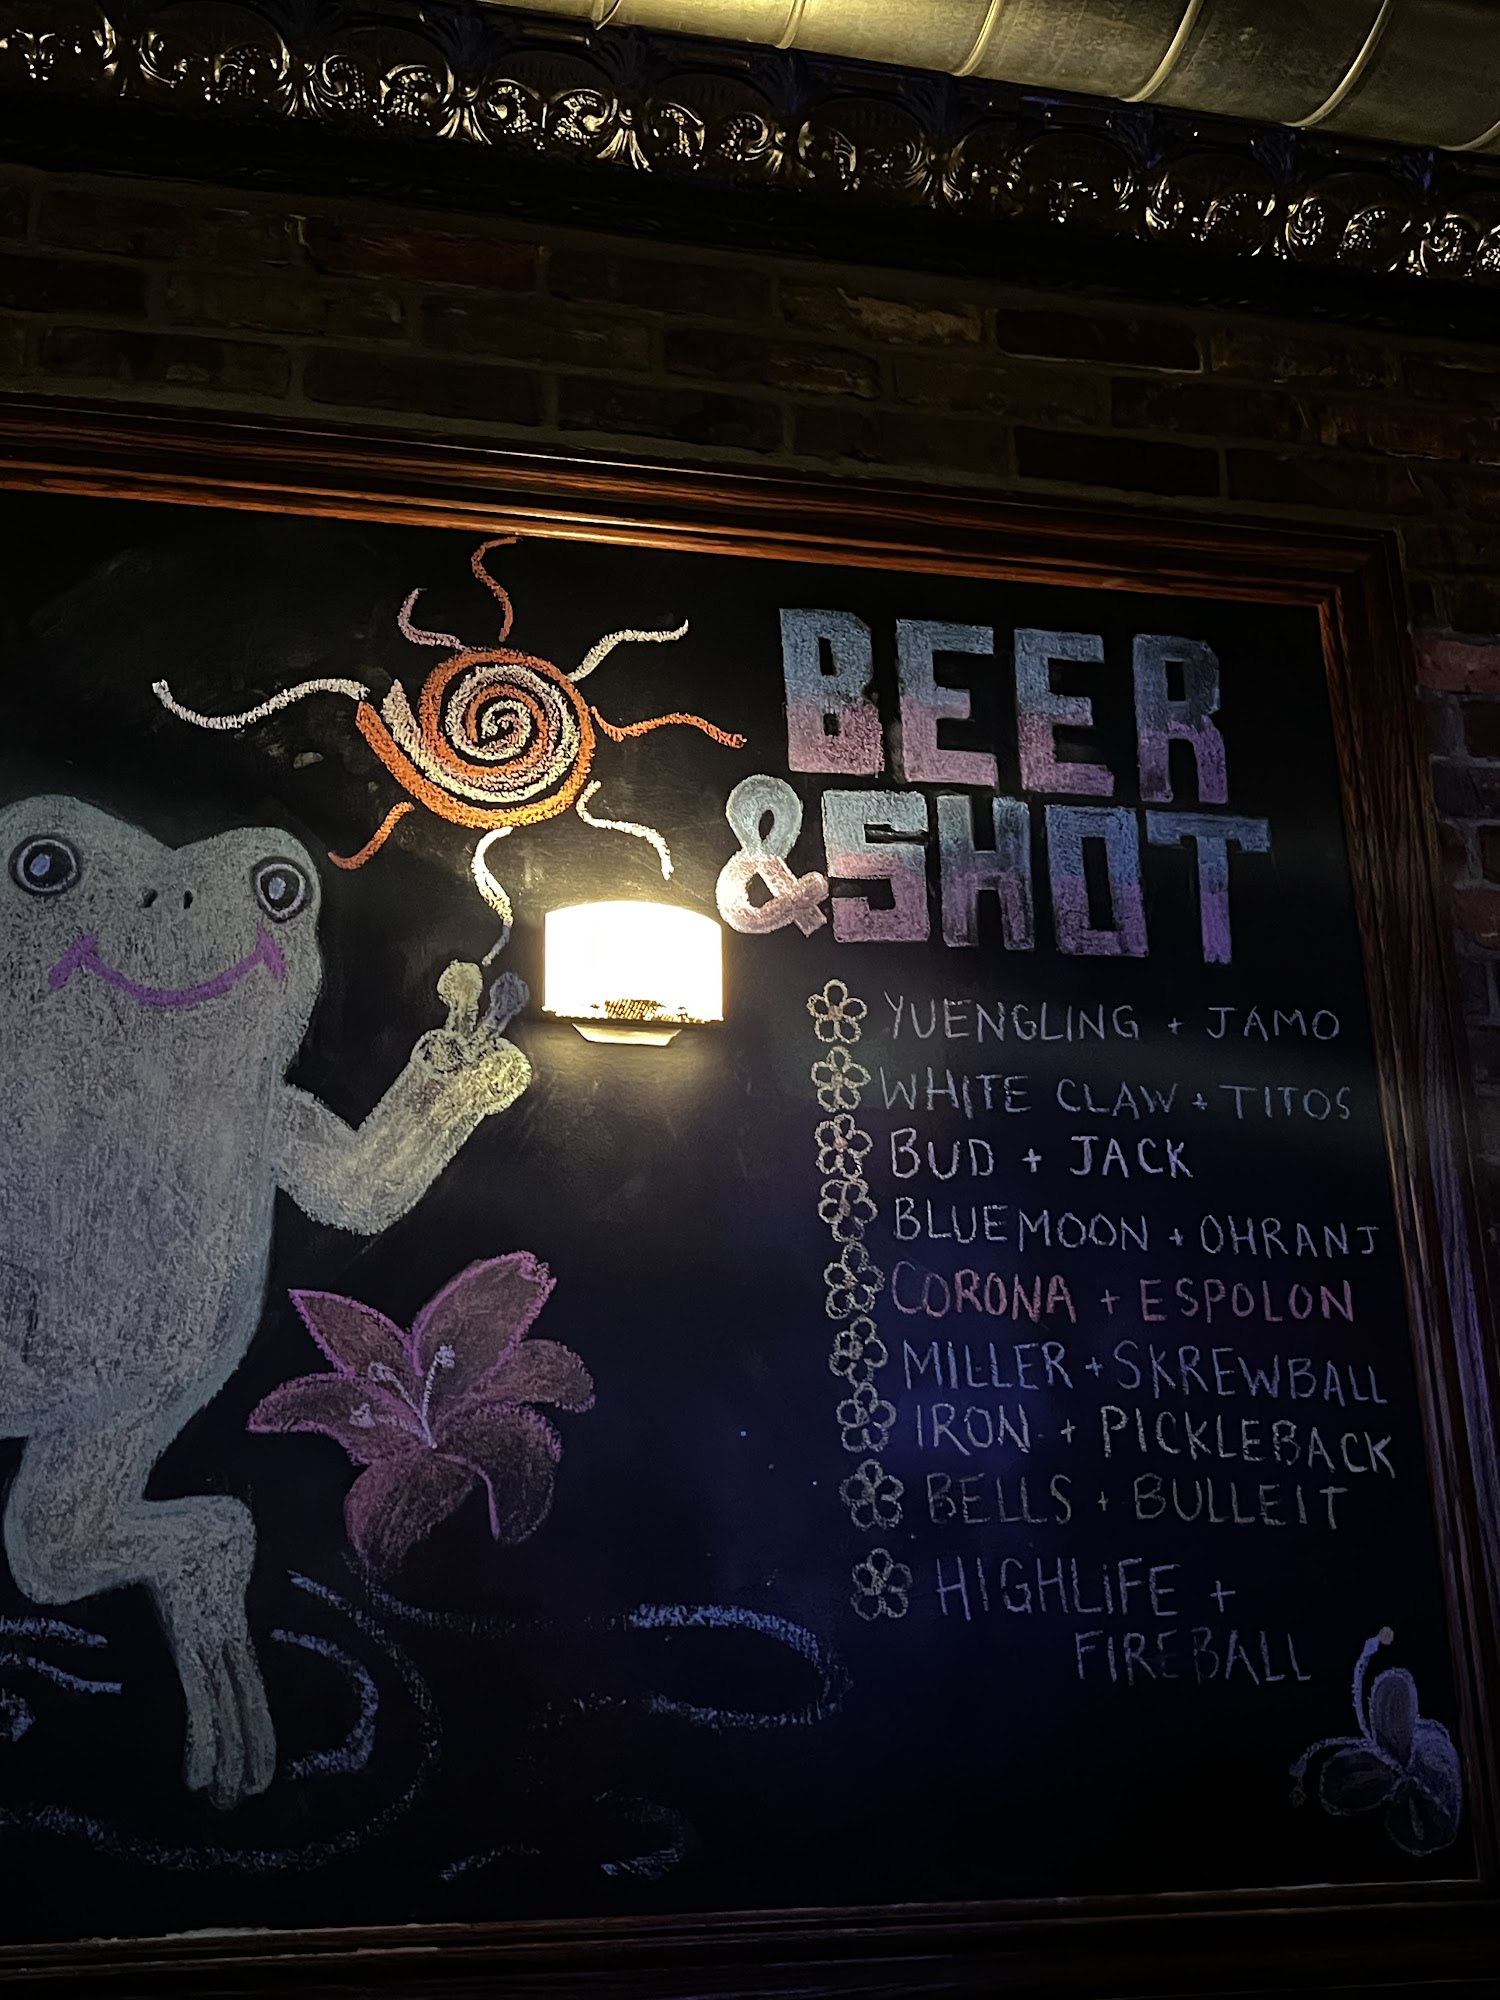 BEER
& SHOT
YUENGLING + JAMO
WHITE CLAW + TITOS
BUD + JACK
BLUEMOON + OHRANJ
CORONA + ESPOLON
MILLER + SKREWBALL
IRON + PICKLEBACK
BELLS + BULLEIT
HIGHLIFE +
FIREBALL